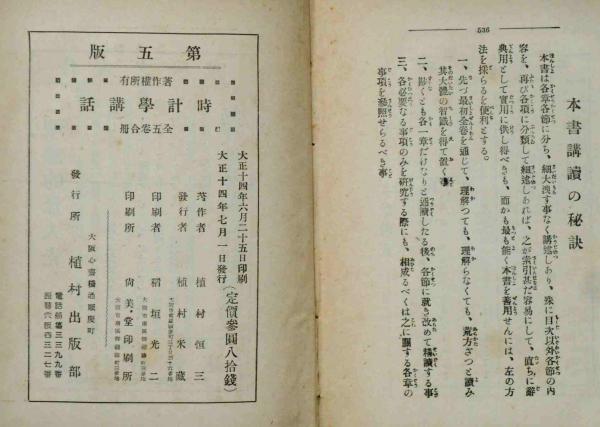 536
本書講讀の秘訣
本書は各章各節に分ち、細大洩す事なく講述しあり、殊に目次以外各節の内
容を、再び各項に分類して細述しあれば、之が索引甚だ容易にして、直ちに辭
典用として實用に供し得べきも、而かも最も能く本書を善用せんには、左の方
法を採らるを便利とする。
一、先づ最初全卷を通じて、理解つても、理解らなくても、荒方ざつと讀み
其大體の智識を得て置く事
二、尠くとも各一章だけなりと通讀したる後、各節に就き改めて精讀する事
三、各必要なる事項のみを硏究する際にも、相成るべくは之に關する各章の
事項を參照せらるべき事
第五版
著作權所有
時計學講話
全五卷合册
大正十四年六月二十五日印刷
大正十四年七月一日發行
(定價參圓八拾錢)
著作者 植村恒三
發行者 植村米藏
印刷者 稻垣光二
印刷所 尙美堂印刷所
大阪心齋橋通順慶町
發行所 植村出版部
電話船場三三九九番